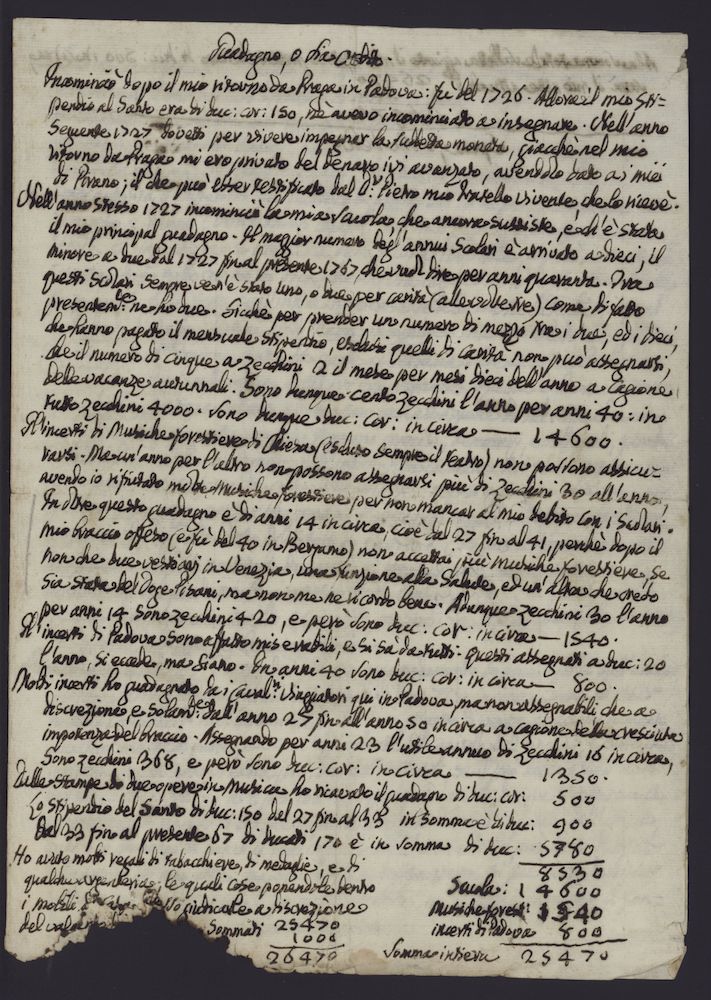 Guadagno, o sia Credito.
Incominciò dopo il mio ritorno da Praga in Padova: fù del 1726. Allora il mio Sti=
pendio al Santo era di duc: cor: 150, nè avevo incominciato a insegnare. Nell'anno
Seguente 1727 dovetti per vivere impegnar la suddetta monata, giacchè nel mio
ritorno da Praga mi ero privato del denaro ivi avanzato, avendolo dato a' miei
di Pirano; il che può esser testificato dal Sr. Pietro mio Fratello vivente, che lo ricevè.
Nell'anno stesso 1727 incominciò la mia Scuola, che ancora sussiste, ed è stata
il mio principal guadagno. Il maggior numero degl'annui Scolari è arrivato a dieci, il
minore a due dal 1727 fin al presente 1767, che vuol dire per anni quaranta. Tra
questi Scolari sempre ve n'è stato uno, o due per carità (alle volte tre) come di fatto
presentemte. ne ho due. Sicchè per prender un numero di mezzo tra i due, ed i dieci,
che hanno pagato il mensuale stipendio, esclusi quelli di carità non può assegnarsi,
che il numero di cinque a zecchini 2 il mese per mesi dieci dell'anno a cagione
delle vacanze autunnali. Sono dunque cento zecchini l'anno per anni 40: in
tutto zecchini 4000. Sono dunque duc: cor: in circa — 14600.
Gl'incerti di Musiche forestiere di Chiesa (escluso sempre il teatro) non possono assicu=
rarsi. Ma un'anno per l'altro non possono assegnarsi più di zecchini 30 all'anno,
avendo io rifiutato molte Musiche forestiere per non mancar al mio debito con i Scolari.
In oltre questo guadagno è di anni 14 in circa, cioè dal 27 fin al 41, perchè dopo il
mio braccio offeso (e fù del 40 in Bergamo) non accettai più musiche forestiere, se
non che due vestiari in Venezia, una funzione alla Salute, ed un'altra che credo
sia stata del Doge Pisani, ma non me ne ricordo bene. Adunque zecchini 30 l'anno
per anni 14 sono zecchini 420, e però sono duc: cor: in circa — 1540.
Gl'incerti di Padova sono affatto miserabili, e si sà da tutti. questi assegnati a duc: 20
l'anno, si eccede, ma siano. In anni 40 sono duc: cor: in circa — 800.
Molti incerti ho guadagnato da i Caval:ri Viaggiatori qui in Padova, ma non assegnabili che a
discrezione, e solamte. dall'anno 27 fin all'anno 50 in circa a cagione della cresciuta
impotenza del braccio. Assegnando per anni 23 l'utile annuo di zecchini 16 in circa,
Sono zecchini 368, e però sono duc: cor: in circa — 1350.
Dalle stampe di due opere in Musica ho ricavato il guadagno di duc: cor: 500
Lo stipendio del Santo di duc: 150 dal 27 fin al 33 in somma è di duc: 900
Dal 33 fino al presente 67 di ducati 170 è in somma di duc: 5780
8530
Ho avuto molti regali di tabacchiere, di medaglie, e di
qualche argenteria; le quali cose ponendole dentro
i mobili giudicale a discrezione
del valore
Sommati 25470
1000
26470
Scuola: 14600
Musiche forest: 1540
incerti di Padova 800
Somma intiera 25470